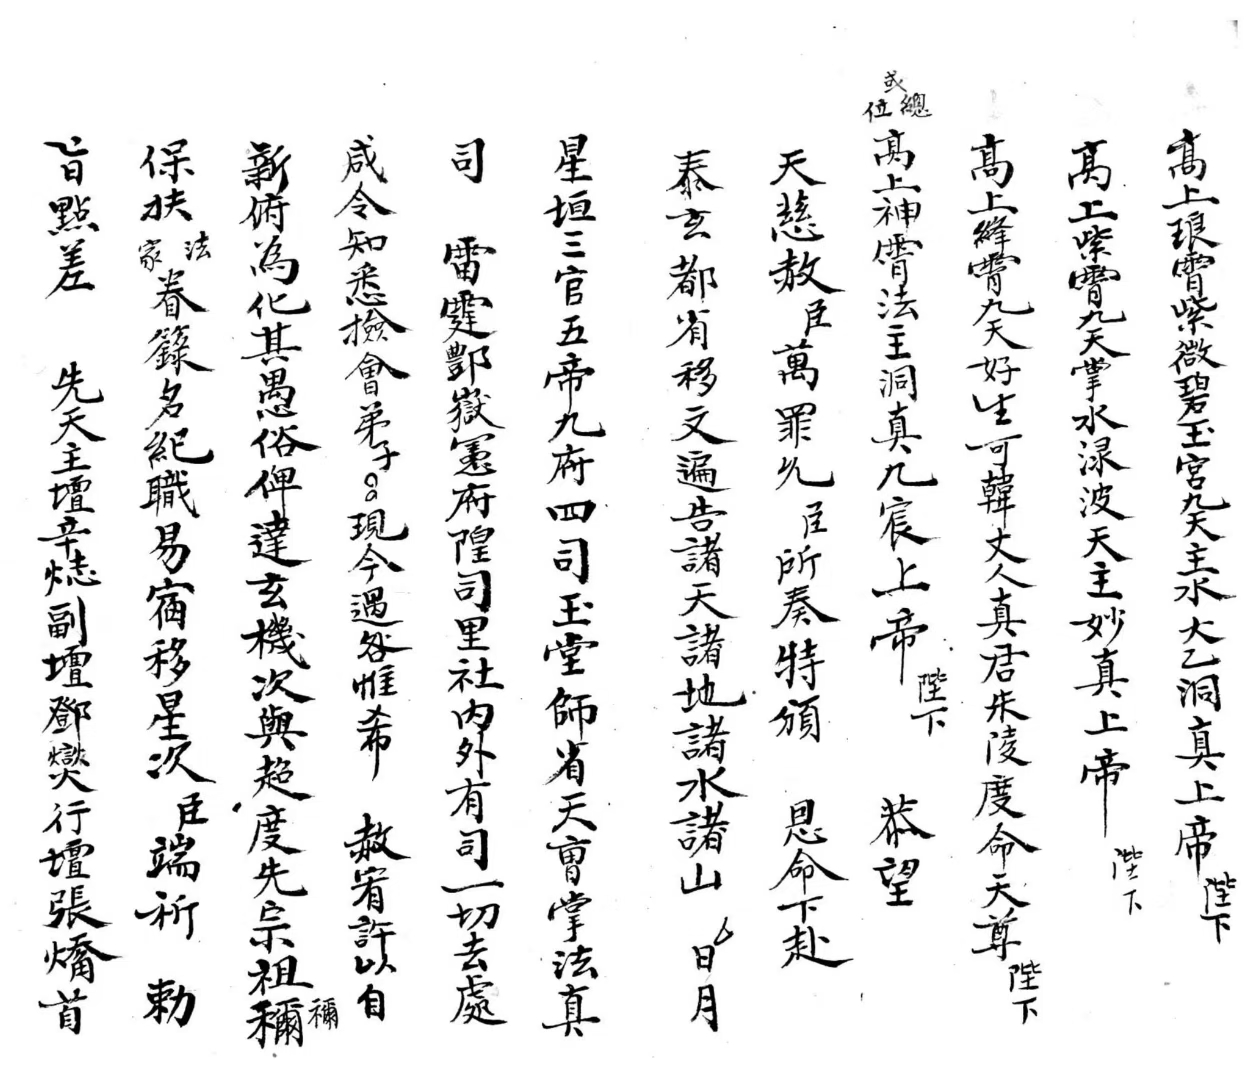 高上琅霄紫微碧玉宮九天主水大乙洞真上帝陛下
高上紫霄九天掌水渌波天主妙真上帝陛下
高上絳霄九天好生可韓丈人真君朱陵度命天尊陛下
或總位高上神霄法主洞真九宸上帝陛下 恭望
天慈赦臣萬罪允臣所奏特頒 恩命下赴
泰玄都省移文遍告諸天諸地諸水諸山 日月
星垣三官五帝九府四司玉堂師省天曹掌法真
司 雷霆酆嶽憲府隍司里社内外有司一切去處
咸令知悉撿會弟子 現今遇咎惟希 赦宥許以自
新俯為化其愚俗俾達玄機次與超度先宗祖禰禰
保扶法家眷籙名紀職易宿移星次臣端祈 勅
旨點差 先天主壇辛 副壇鄧燮行壇張燔首